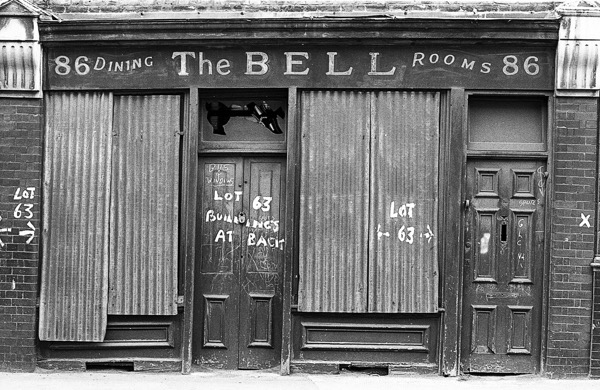 86 DINING The BELL ROOMS 86
LOT
63
LOT 63
BUILDINGS
AT BACK
LOT
63
X